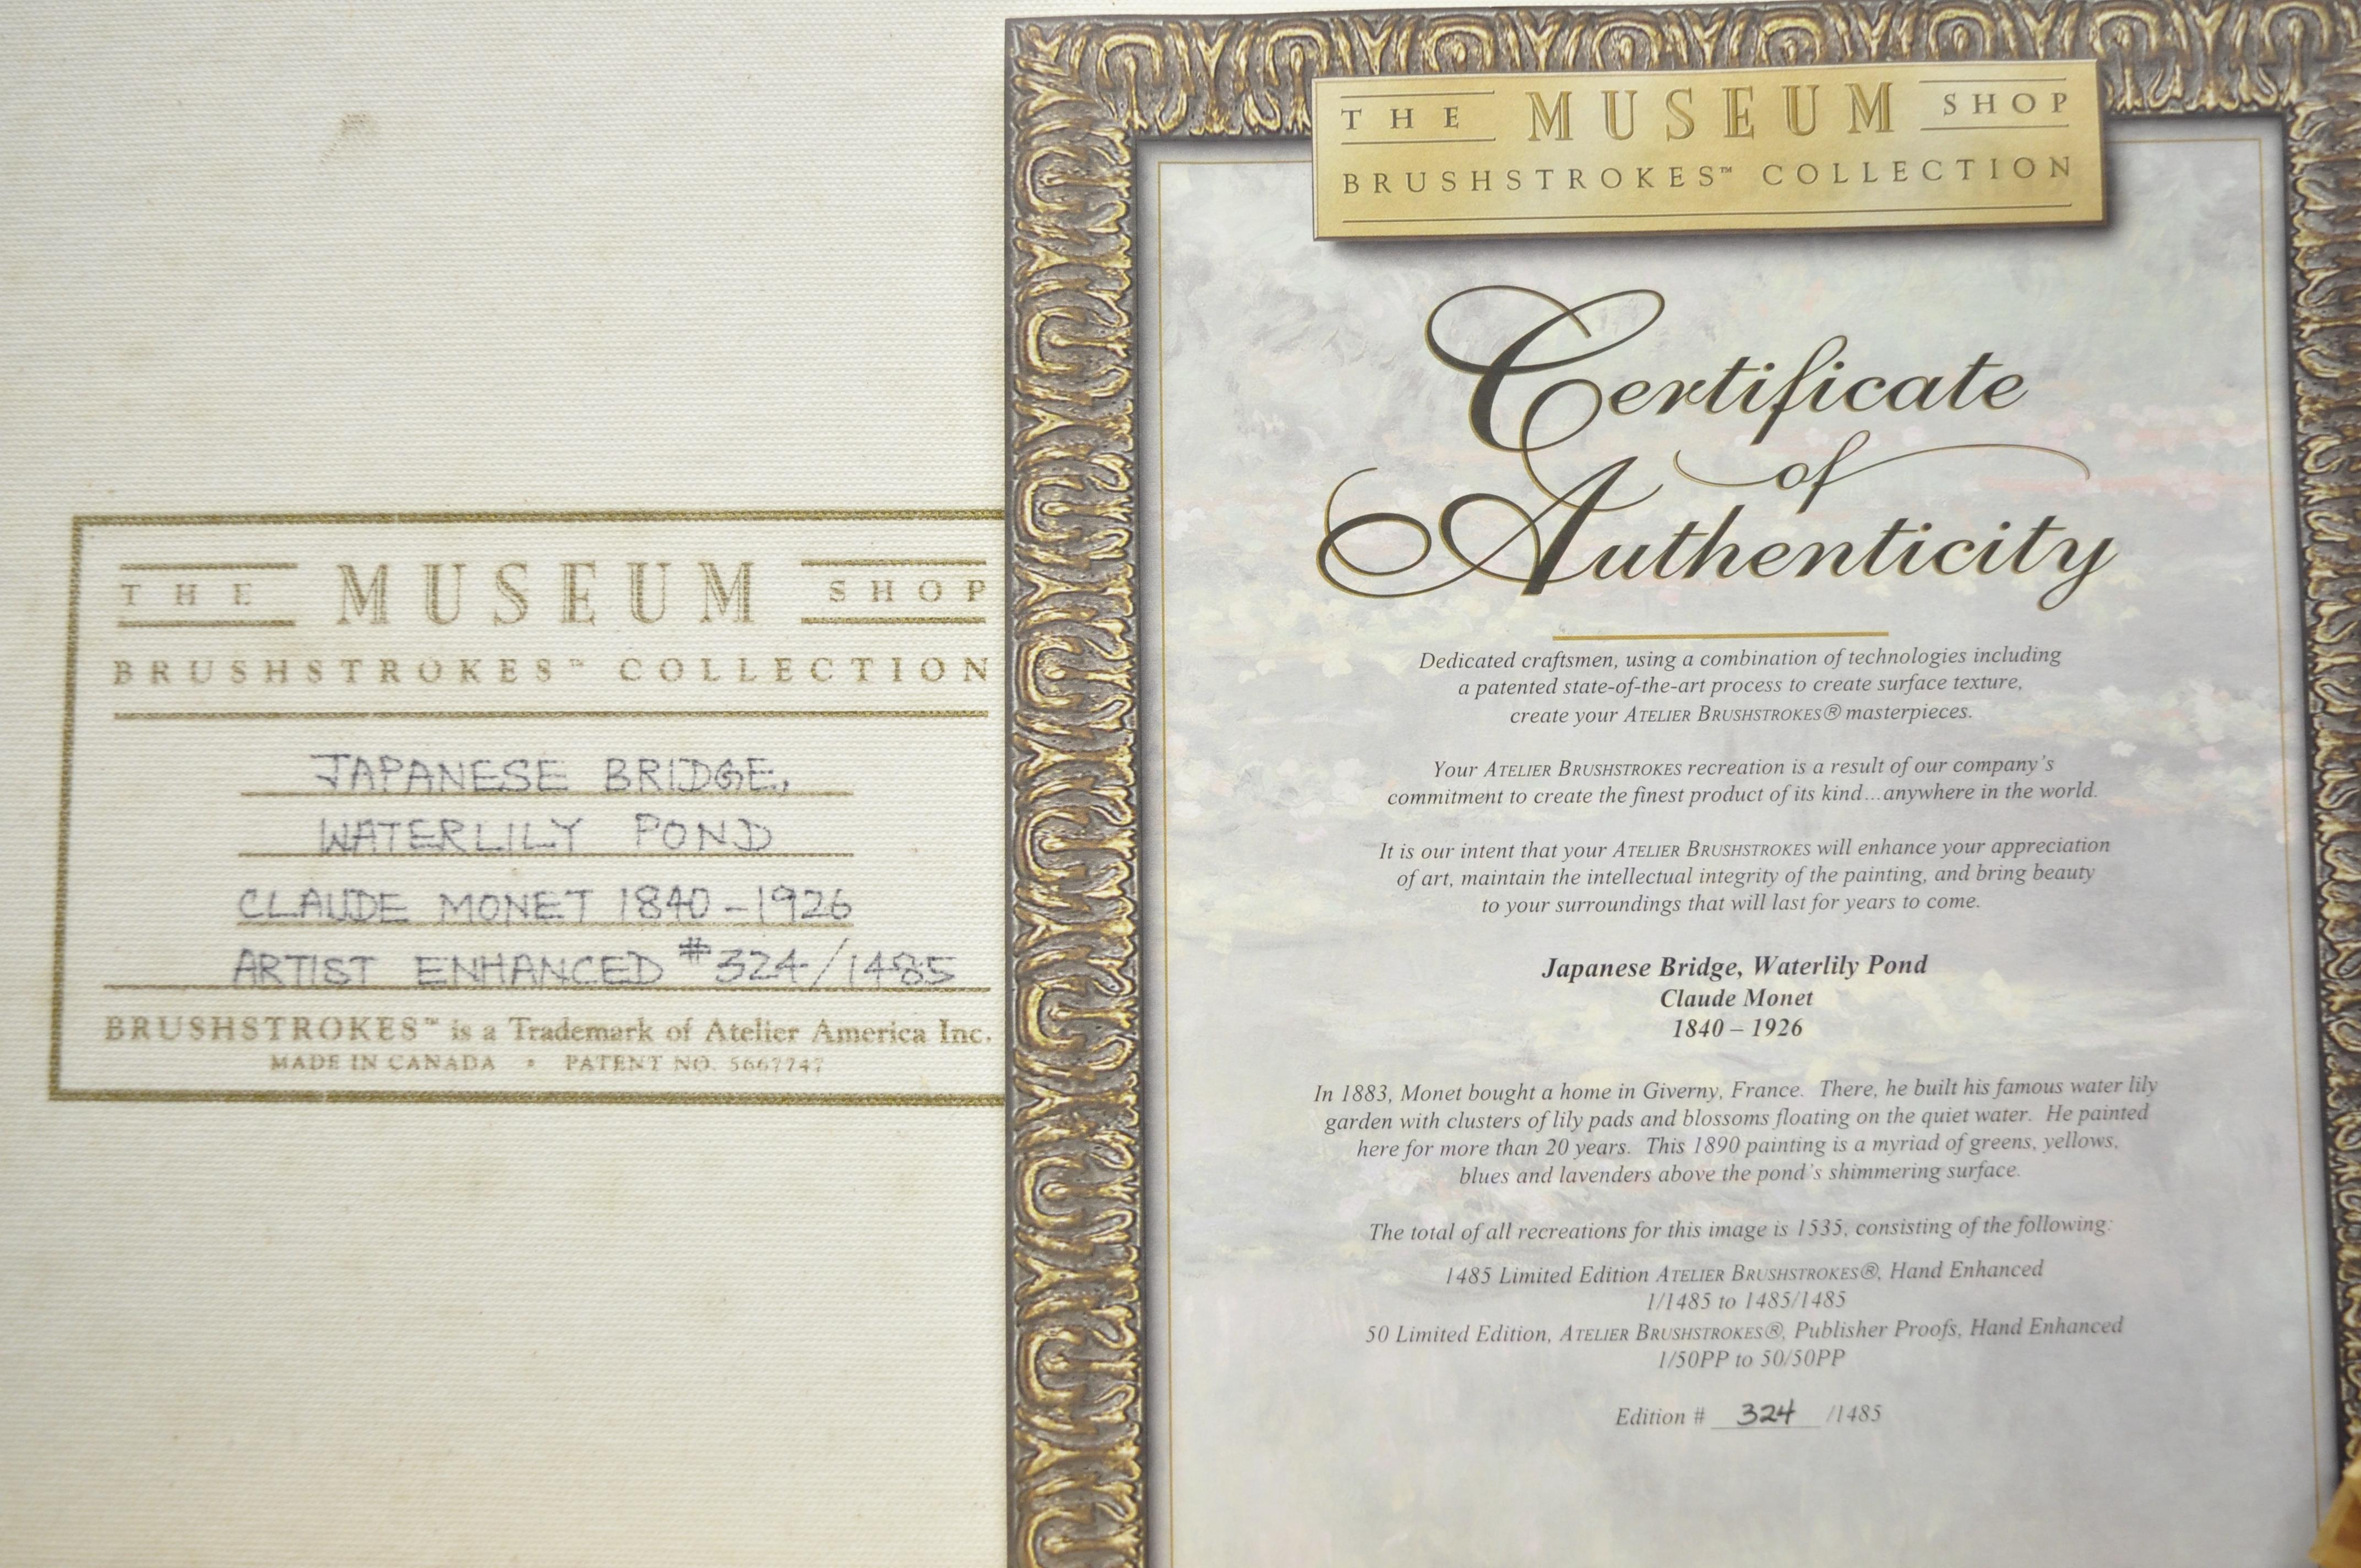 THE MUSEUM SHOP
BRUSHSTROKES™ COLLECTION
JAPANESE BRIDGE,
WATERLILY POND
CLAUDE MONET 1840-1926
ARTIST ENHANCED #324/1485
BRUSHSTROKES™ is a Trademark of Atelier America Inc.
MADE IN CANADA • PATENT NO. 5667747
THE MUSEUM SHOP
BRUSHSTROKES™ COLLECTION
Certificate
of
Authenticity
Dedicated craftsmen, using a combination of technologies including
a patented state-of-the-art process to create surface texture,
create your ATELIER BRUSHSTROKES® masterpieces.
Your ATELIER BRUSHSTROKES recreation is a result of our company's
commitment to create the finest product of its kind...anywhere in the world.
It is our intent that your ATELIER BRUSHSTROKES will enhance your appreciation
of art, maintain the intellectual integrity of the painting, and bring beauty
to your surroundings that will last for years to come.
Japanese Bridge, Waterlily Pond
Claude Monet
1840 – 1926
In 1883, Monet bought a home in Giverny, France. There, he built his famous water lily
garden with clusters of lily pads and blossoms floating on the quiet water. He painted
here for more than 20 years. This 1890 painting is a myriad of greens, yellows,
blues and lavenders above the pond's shimmering surface.
The total of all recreations for this image is 1535, consisting of the following:
1485 Limited Edition ATELIER BRUSHSTROKES®, Hand Enhanced
1/1485 to 1485/1485
50 Limited Edition, ATELIER BRUSHSTROKES®, Publisher Proofs, Hand Enhanced
1/50PP to 50/50PP
Edition # 324 /1485